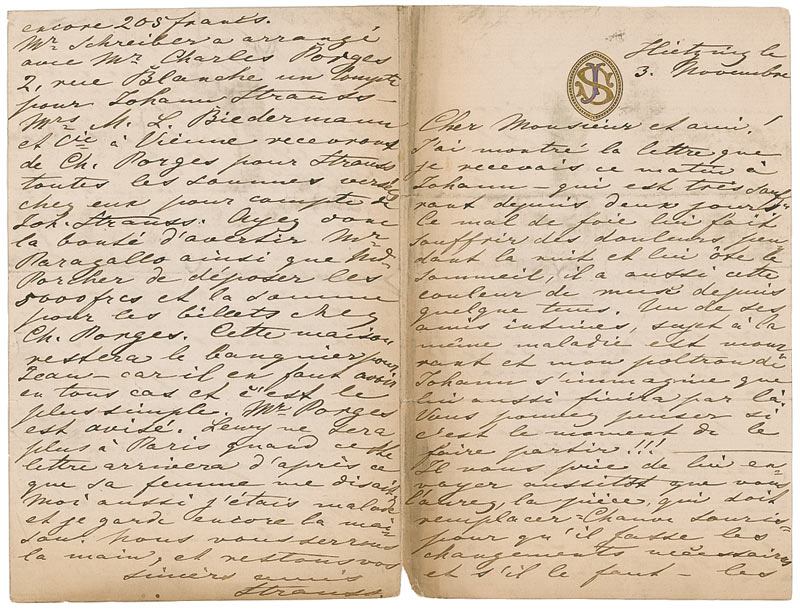 Hietzing le
3. Novembre
JS
Cher Monsieur et ami!
J'ai montré la lettre que
je recevais ce matin à
Johann – qui est très souf
rant depuis deux jours.
Le mal de foie lui fait
souffrir des douleurs, pen
dant la nuit et lui ôte le
sommeil, il a aussi cette
couleur de depuis
quelque tems. Un de ses
amis intimes, sujet à la
même maladie est mou
rant et mon poltron de
Johann s'immagine que
lui aussi finira par là.
Vous pouvez penser si
c'est le moment de le
faire partir!!!
Il vous prie de lui en=
voyer aussitôt que vous
l'aurez, la pièce, qui doit
remplacer = Chauve Souris =
pour qu'il fasse les
changements nécessaires
et s'il le faut – les
encore 205 francs.
Mr Schreiber a arrangé
avec Mr. Charles Porges
2, rue Blanche un compte
pour Johann Strauss –
Mrs M. L. Biedermann
et Cie à Vienne recevrons
de Ch. Porges pour Strauss
toutes les sommes versées
chez eux pour compte de
Joh. Strauss. Ayez donc
la bonté d'avertir Mr
Paragallo ainsi que Md
Porcher de déposer les
5000 frcs et la somme
pour les billets chez
Ch. Porges. Cette maison
restera le banquier pour
Jean – car il en faut avoir
en tous cas et c'est le
plus simple. Mr. Porges
est avisé. Lewy ne sera
plus à Paris quand cette
lettre arrivera d'après ce
que sa femme me disait
Moi aussi j'étais malade
et je garde encore la mai
son. Nous vous serrons
la main, et restons vos
sincèrs amis
Strauss